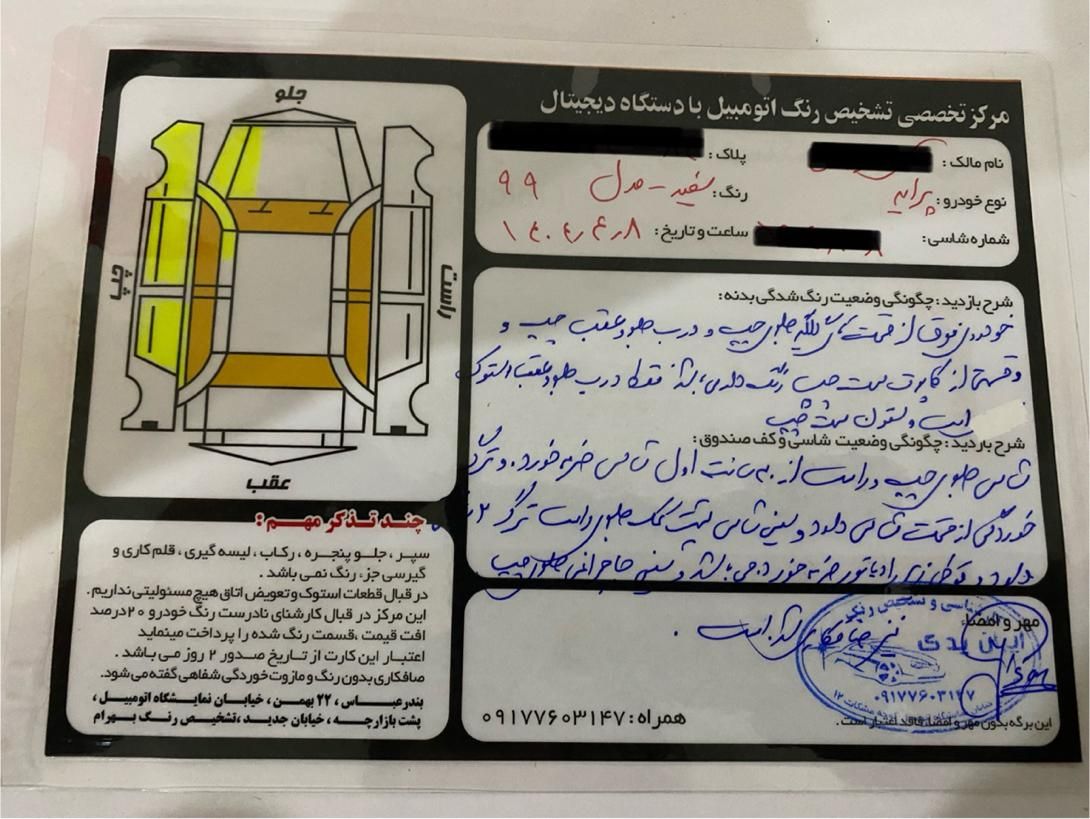 مرکز تخصصی تشخیص رنگ اتومبیل با دستگاه دیجیتال
نام مالک :
پلاک :
نوع خودرو : پراید
رنگ : سفید - مدل ۹۹
شماره شاسی :
ساعت و تاریخ : ۱۴۰۴٫۶٫۸
شرح بازدید : چگونگی وضعیت رنگ شدگی بدنه :
خودرو فوق از قسمت های گلگیر جلوی چپ و درب جلو و عقب چپ و
قسمتی از کاپوت سمت چپ رنگ دارد می باشد فقط درب جلو و عقب استوک
است و ستون سمت چپ
شرح بازدید : چگونگی وضعیت شاسی و کف صندوق :
شاسی جلوی چپ و راست از سانت اول شاسی ضربه خورده و ترک
خوردگی از قسمت شاسی دارد و سینی شاسی پشت کمک جلوی راست ترک
دارد و زیر رادیاتور ضربه خورده می باشد و سینی جلوی چپ
نیز صافکاری شده است .
مهر و امضاء
۰۹۱۷۷۶۰۳۱۴۷
همراه : ۰۹۱۷۷۶۰۳۱۴۷
این برگه بدون مهر و امضاء فاقد اعتبار است .
جلو
چپ
راست
عقب
چند تذکر مهم :
سپر ، جلو پنجره ، رکاب ، لیسه گیری ، قلم کاری و
گیرسی جزء رنگ نمی باشد .
در قبال قطعات استوک و تعویض اتاق هیچ مسئولیتی نداریم .
این مرکز در قبال کارشنای نادرست رنگ خودرو ۲۰ درصد
افت قیمت ،قسمت رنگ شده را پرداخت مینماید
اعتبار این کارت از تاریخ صدور ۲ روز می باشد .
صافکاری بدون رنگ و مازوت خوردگی شفاهی گفته می شود.
بندرعباس ، ۲۲ بهمن ، خیابان نمایشگاه اتومبیل ،
پشت بازارچه ، خیابان جدید ،تشخیص رنگ بهرام